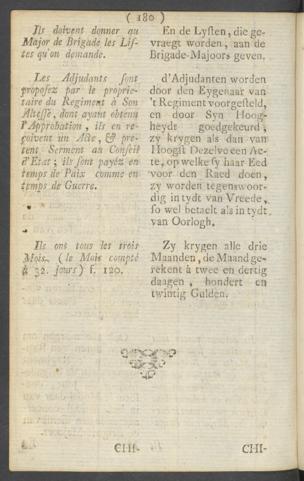 ( 180 )
Ils doivent donner au
Major de Brigade les Lis-
tes qu'on demande.
Les Adjudants sont
proposez par le proprie-
taire du Regiment à Son
Altesse, dont ayant obtenu
l'Approbation, ils en re-
çoivent un Acte, & pre-
tent Serment au Conseil
d'Etat; ils sont payéz en
temps de Paix comme en
temps de Guerre.
Ils ons tous les trois
Mois, (le Mois compté
à 32. jours) f. 120.
CHI-
En de Lysten, die ge-
vraegt worden, aan de
Brigade-Majoors geven.
d'Adjudanten worden
door den Eygenaar van
't Regiment voorgesteld,
en door Syn Hoog-
heydt goedgekeurd,
zy krygen als dan van
Hoogst Dezelve een Ac-
te, op welke sy haar Eed
voor den Raed doen,
zy worden tegenswoor-
dig in tydt van Vreede,
so wel betaelt als in tydt
van Oorlogh.
Zy krygen alle drie
Maanden, de Maand ge-
rekent à twee en dertig
daagen, hondert en
twintig Gulden.
CHI-